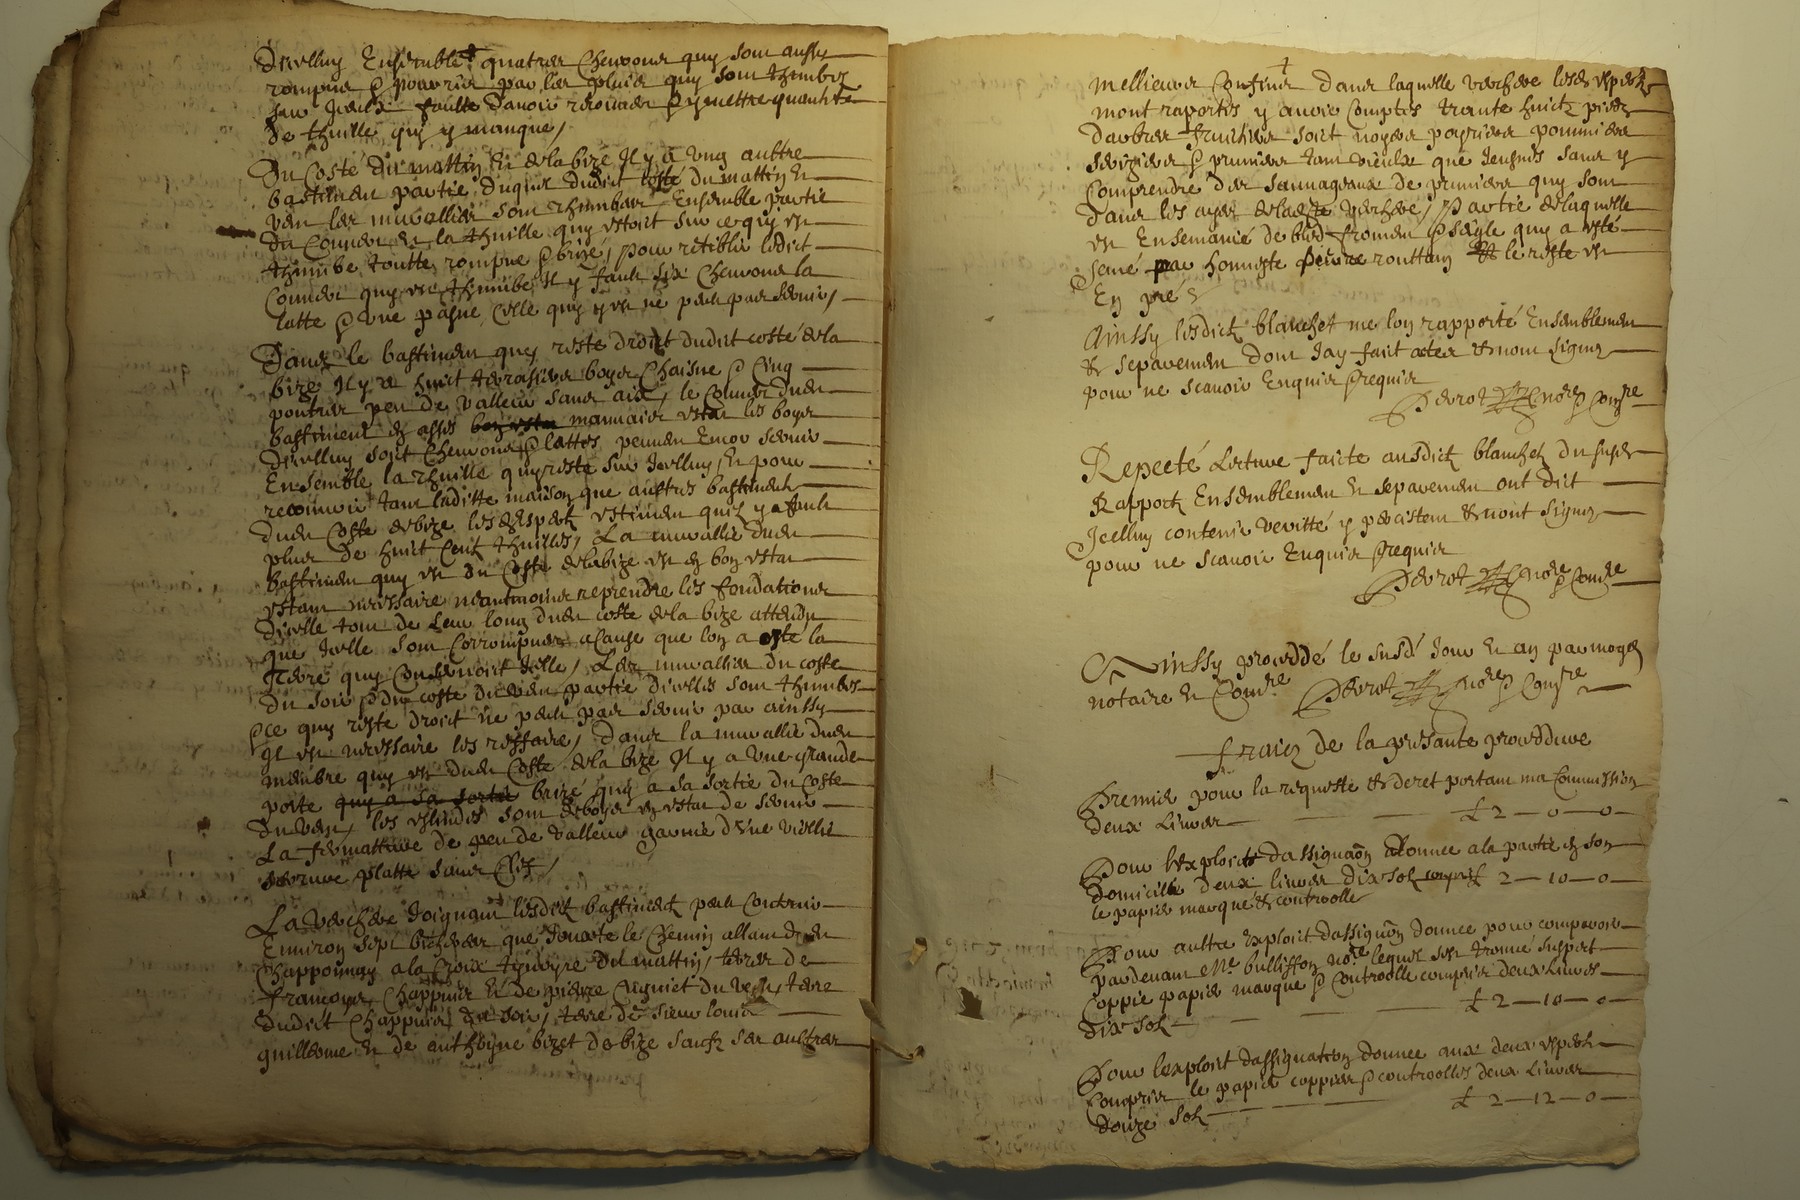 Dicelluy Ensemble quatres Chevrons quy sont aussy
rompus & pourris par les pluies quy sont thombez
sur Iceux faulte davoir recouver & y mettre quantité
de thuille quy y manque /
Du Costé du mattin et de la bize Il y a ung aultre
bastiment partie duquel dudict costé du mattin et
vent les muraillies sont thumbees Ensemble partie
du Couvert et la thuille quy estoit sur ce quy est
thumbé toutte rompue & brizé / pour restiblir ledict
Couvert quy est thumbé Il y fault six Chevrons la
latte & une pasne celle quy y est ne peult pas servir /
Dans le bastiment quy reste droict dudict costé de la
bize Il y a huict terrassiers boys Chaisne & Cinq
poultres peu de valleur sans aix, le Couvert dud
bastiment en asses mauvais estat les boys
dicelluy soit Chevrons & lattes peuvent Encor servir
Ensemble la thuille quy reste sur Icelluy, et pour
recouvrir tant laditte maison que aultres bastiments
dud Coste de bize lesd Expertz estiment quil y fault
plus de huict Cent thuilles, La muraillie dud
bastiment quy est du Coste de la bize est en bon estat
estant necessaire neantmoins reprendre les fondations
dicelle tout de leur long dud coste de la bize attendu
que Icelle sont Corrompues a Cause que lon a osté la
terre quy Conservoit Icelle / Les muraillies du coste
du soir & du coste du vent partie dicelles sont thumbes
& ce quy reste droict ne peult pas servir par ainssy
Il est necessaire les reffaire / Dans la muraillie dud
membre quy est dud Coste de la bize Il y a une grande
porte quy a sa sortie brizé quy a sa sortie du Coste
du vent, les eslindes sont de boys en estat de servir
La fermatture de peu de valleur garnie d'une vieillie
serrure platte sans Clef /
La verchere Joignant lesdict bastimentz peult Contenir
Environ sept bicherees que Jouxte le Chemin allant de
Chapponnay a la Croix du mattin / terres de
francoys Chappuis et de pierre Cugniet du vent, terre
dudict Chappuis du soir, terre de sieur louis
guilleome et de anthoyne bizet de bize saufz ses aultres
mellieurs Confins dans laquelle verchere lesd expertz
mont raportes y avoir Comptes trante huict pieds
darbres fruictiers soit noyers poyriers pommiers
seriziers & pruniers tant vieulx que Jeusnes sans y
Comprendre des sauvageaux de pruniers quy sont
dans les ayes de lad verchere, partie de laquelle
est Ensemancé de bled froment & seigle quy a esté
semé par honneste pierre et le reste est
En pré
Ainssy lesdictz blanchet me lon rapporté Ensemblement
et separement dont Jay faict actes et nont signez
pour ne scavoir Enquis & requis
Perrot no.re & Com.re
Repeté Lecture faicte ausdictz blanchet du susd
Rapport Ensemblement et separement ont dict
Icelluy contenir veritté y percistent et nont signez
pour ne scavoir Enquis & requis
Perrot no.re & Com.re
Ainssy proceddé le susd Jour et an par moy
notaire et Com.re Perrot no.re & Com.re
fraiz de la presante proceddure
Premier pour la requeste et decret portant ma Commission
deux Livres £ 2 — 0 — 0
Pour l'exploit dassignaõn donnee a la partie en son
domicille deux livres dix solz compris £ 2 — 10 — 0
le papier marqué et controolle
Pour aultre exploit dassignaõn donnee pour comparoir
pardevant M.e bullisson no.re lequel sest trouvé suspect
Coppie papier marque & Controolle compris deux Livres
dix solz £ 2 — 10 — 0
Pour lexploit dassignation donnee aux deux expertz
Compris le papier coppies & controolles deux Livres
douze solz £ 2 — 12 — 0